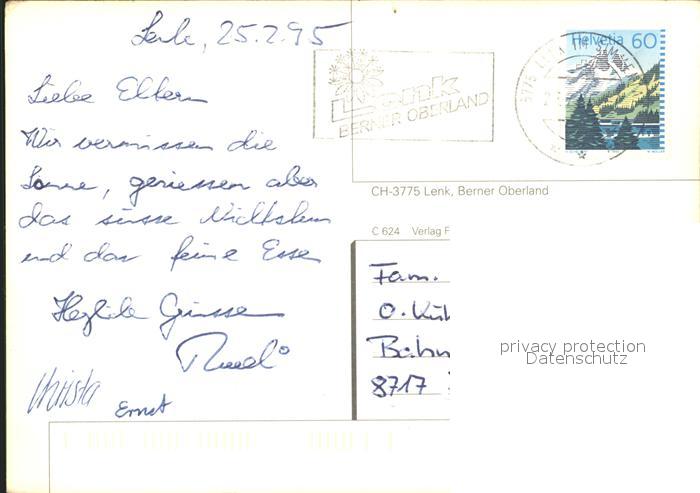 Lenk, 25.2.95
Liebe Eltern
Wir vermissen die
Sonne, geniessen aber
das süsse Nichtstun
und das feine Essen
Herzliche Grüsse
Ruedi
Christa
Ernst
Lenk
BERNER OBERLAND
3775 LENK
Helvetia 60
CH-3775 Lenk, Berner Oberland
C 624 Verlag F
Fam.
O. Küh
Bahn
8717
privacy protection
Datenschutz